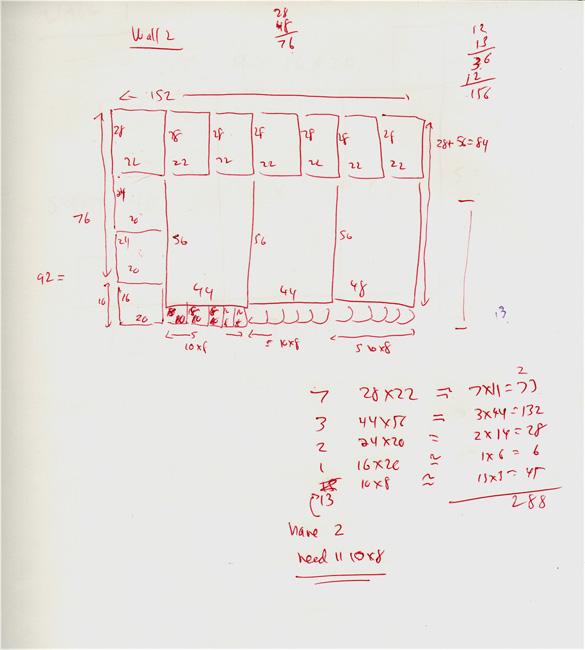 Wall 2
28
48
76
12
13
36
12
156
← 152 →
28 28 28 28 28 28 28
22 22 22 22 22 22 22
28+56=84
76
24
20
24
20
56 56 56
92 =
16
16
20
44 44 48
5
10x8
5 10x8
5 10x8
13
7 28x22 = 7x11=77
2
3 44x56 = 3x44=132
2 24x20 = 2x14=28
1 16x20 ≈ 1x6 = 6
13 10x8 ≈ 15x3=45
288
have 2
need 11 10x8